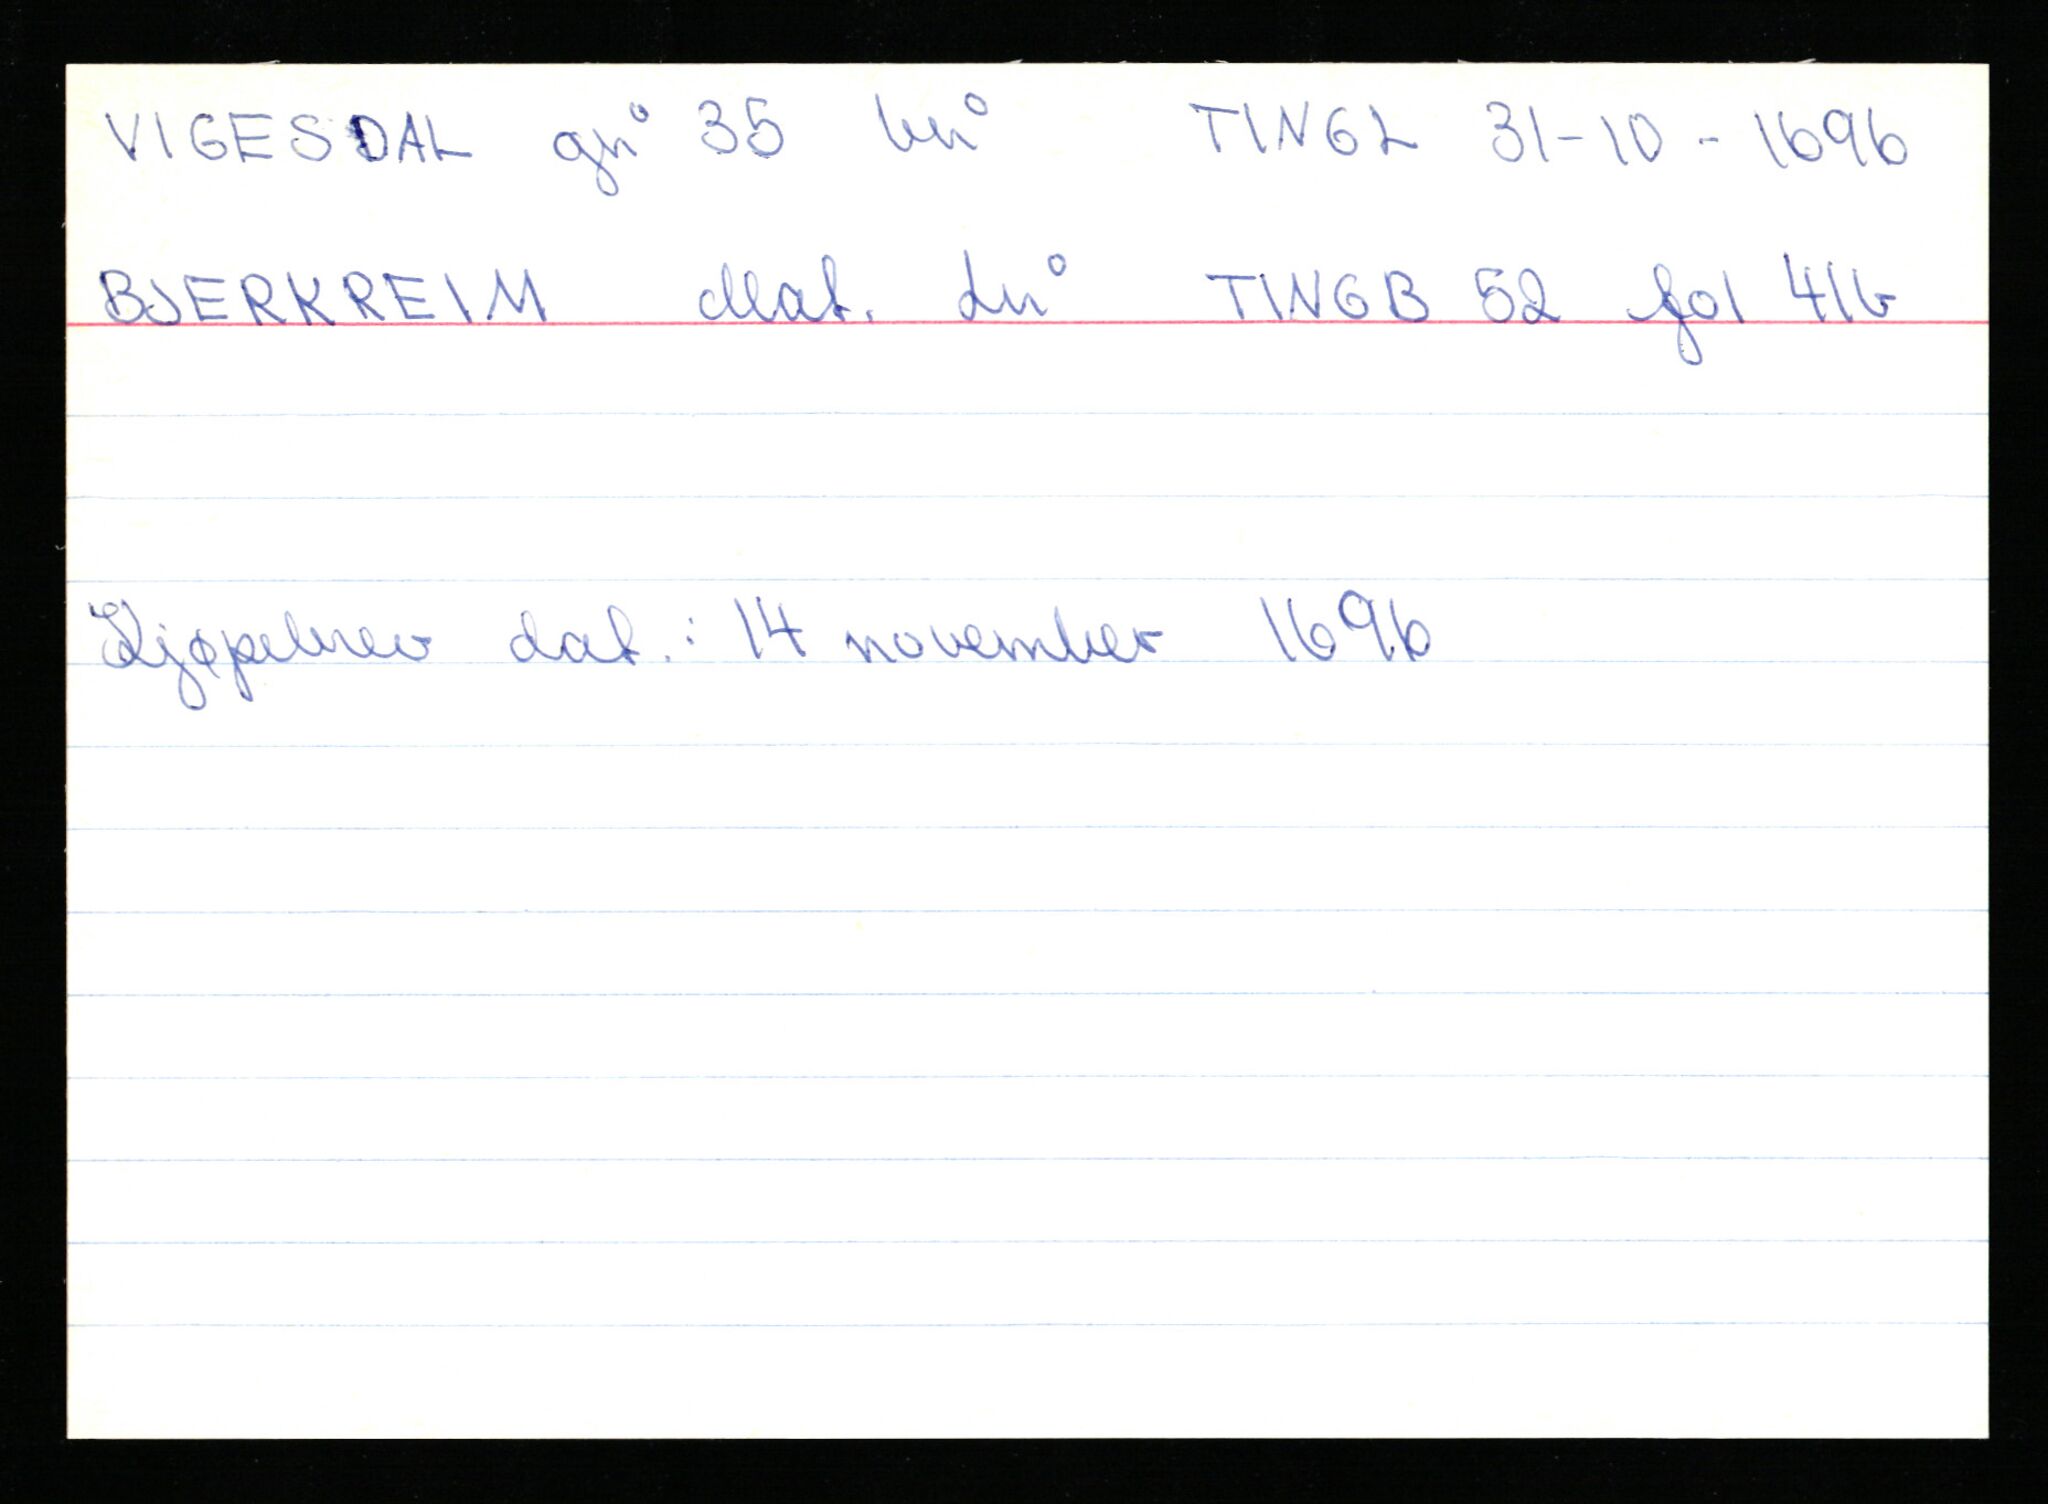 VIGESDAL gn° 35 bn° TINGL 31-10-1696
BJERKREIM Mat. Ln° TINGB 52 fol 41b
Kjøpebrev dat.: 14 november 1696